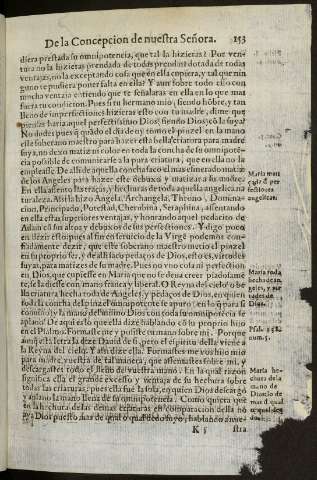 De la Concepcion de nuestra Señora. 153
diera prestada su omnipotencia, que tal la hizieras? Por ven-
tura no la hizieras prendada de todas prendas? dotada de todas
ventajas, no la exceptando cosa que en ella cupiera, y tal que nin
guno se pusiera poner falta en ella? Y aun sobre todo esto con
mucha ventaja entiendo que te señalaras en ella en lo que mas
fuera tu condicion. Pues si tu hermano mio, siendo hõbre, y tan
lleno de imperfecciones hizieras esso con tu madre, dime que
piensas haria aquel perfectissimo Dios, siendo Dios, cõ la suya?
No dudes pues
ella soberano maestro para hazer esta bella criatura para madre
suya, no dexo matiz ni color en toda la concha de su omnipotẽ
cia possible de comunicarse a la pura criatura, que en ella no la
de los Angeles para hazer este debuxo y matizar a su madre.
En ella assento las traças, y hechuras de toda aquella angelica na
turaleza. Alli la hizo Angel, Archangel, Throno, Domina-
cion, Principado, Potestad, Cherubina, Seraphina, assentando
en ella estas superiores ventajas, y honrando aquel pedacito de
Adan cõ sus altos y debuxos de sus perfecciones. Y digo poco
en dezir esto: pues al fin en servicio de la Virgẽ podemos con-
fiadamente dezir, que este soberano maestro metio el pinzel
en su proprio ser, y de alli saco pedaços de Dios, esto es, virtudes
suyas, para matizes de su madre. Pues no vuo cosa ni perfeccion
en Dios, que cupiesse en Maria que no se deua creer piadosamẽ
te, se la diesse con mano franca y liberal. O Reyna del cielo! o be
lla criatura hecha toda de Angeles, y pedaços de Dios, en quien
toda la concha del pinzel omnipotente se apuro: en lo que para si
aplano! De aqui es lo que ella dize hablando cõ su proprio hijo
en el Psalmo. Formaste me y pusiste tu mano sobre mi. Porque
aunq̃ a la letra la dize Dauid de si, pero el espiritu della viene a
la Reyna del cielo. Y assi dize ella: Formaste me vos hijo mio
para madre vuestra de tal manera, que assentastes sobre mi, y
descargastes todo el lleno de vuestra mano. En la qual razon
significa ella el grande excesso y ventaja de su hechura sobre
todas las criaturas; pues ella fue la sola, en quien Dios descargò
y aplano la mano llena de su omnipotencia. Como quiera que
en la hechura de las demas criaturas en comparacion della no
K 5 stra
Maria mati
zada de per
fecciones
angelicas.
Maria toda
hecha de an-
geles, y per
tades de
Dios.
Psal. 138.
num. 5.
Maria he-
chura de la
mano de
Dios